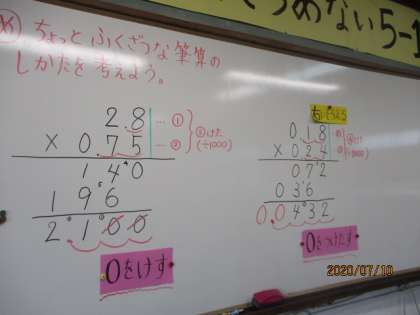 つめない5-1
め ちょっとふくざつな筆算の
しかたを考えよう。
2.8 … ①
× 0.75 … ②
③けた
(÷1000)
140
196
2.100
0をけす
0.18
× 0.24
072
036
0.0432
0をつけたす
2020/07/10